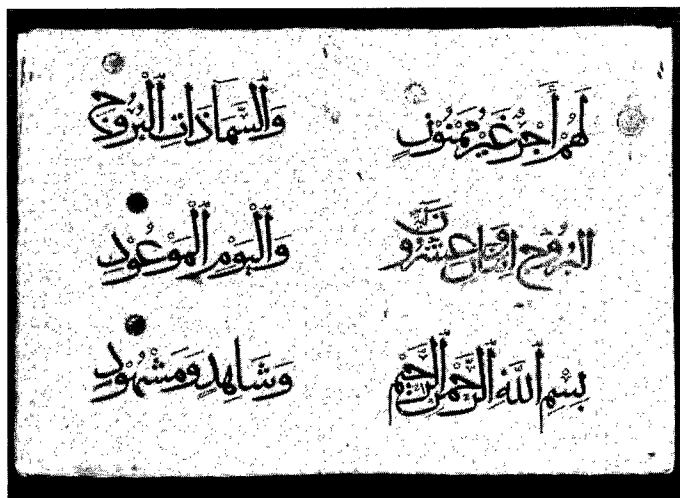 لَهُمْ أَجْرٌ غَيْرُ مَمْنُونٍ
البُرُوج اثنَانِ وَعِشْرُونَ
بِسْمِ ٱللَّهِ ٱلرَّحْمٰنِ ٱلرَّحِيمِ
وَٱلسَّمَآءِ ذَاتِ ٱلْبُرُوجِ
وَٱلْيَوْمِ ٱلْمَوْعُودِ
وَشَاهِدٍ وَمَشْهُودٍ